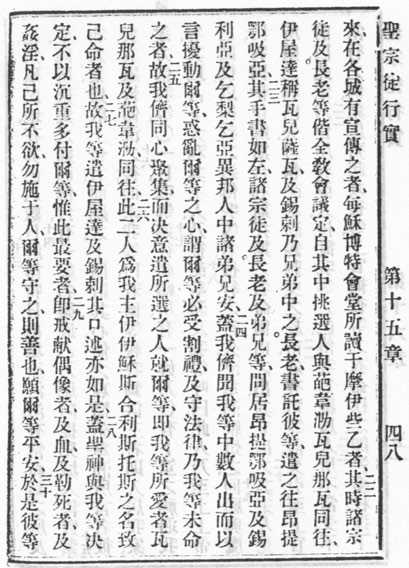 聖宗徒行實 第十五章 四八
來在各城有宣傳之者、每穌博特會堂所讀于摩伊些乙者、二二其時諸宗
徒及長老等偕全敎會議定、自其中挑選人與葩韋泐瓦兒那瓦同往
伊屋達稱瓦兒薩瓦、及錫剌乃兄弟中之長老、二三書託彼等遣之往昂提
鄂吸亞其手書如左、諸宗徒及長老及弟兄等、問居昂提鄂吸亞及錫
利亞及乞梨乞亞異邦人中諸弟兄安、二四蓋我儕聞我等中數人出而以
言擾動爾等、惑亂爾等之心、謂爾等必受割禮、及守法律、乃我等未命
之者、二五故我儕同心聚集、而決意遣所選之人就爾等、二六即我等所愛者瓦
兒那瓦及葩韋泐同往、此二人爲我主伊伊穌斯合利斯托斯之名、致
己命者也、二七故我等遣伊屋達及錫剌其口述亦如是、二八蓋聖神與我等決
定不以沉重多付爾等、惟此最要者、二九卽戒献偶像者、及血、及勒死者、及
姦淫、凡己所不欲勿施于人、爾等守之則善也、願爾等平安、三十於是彼等